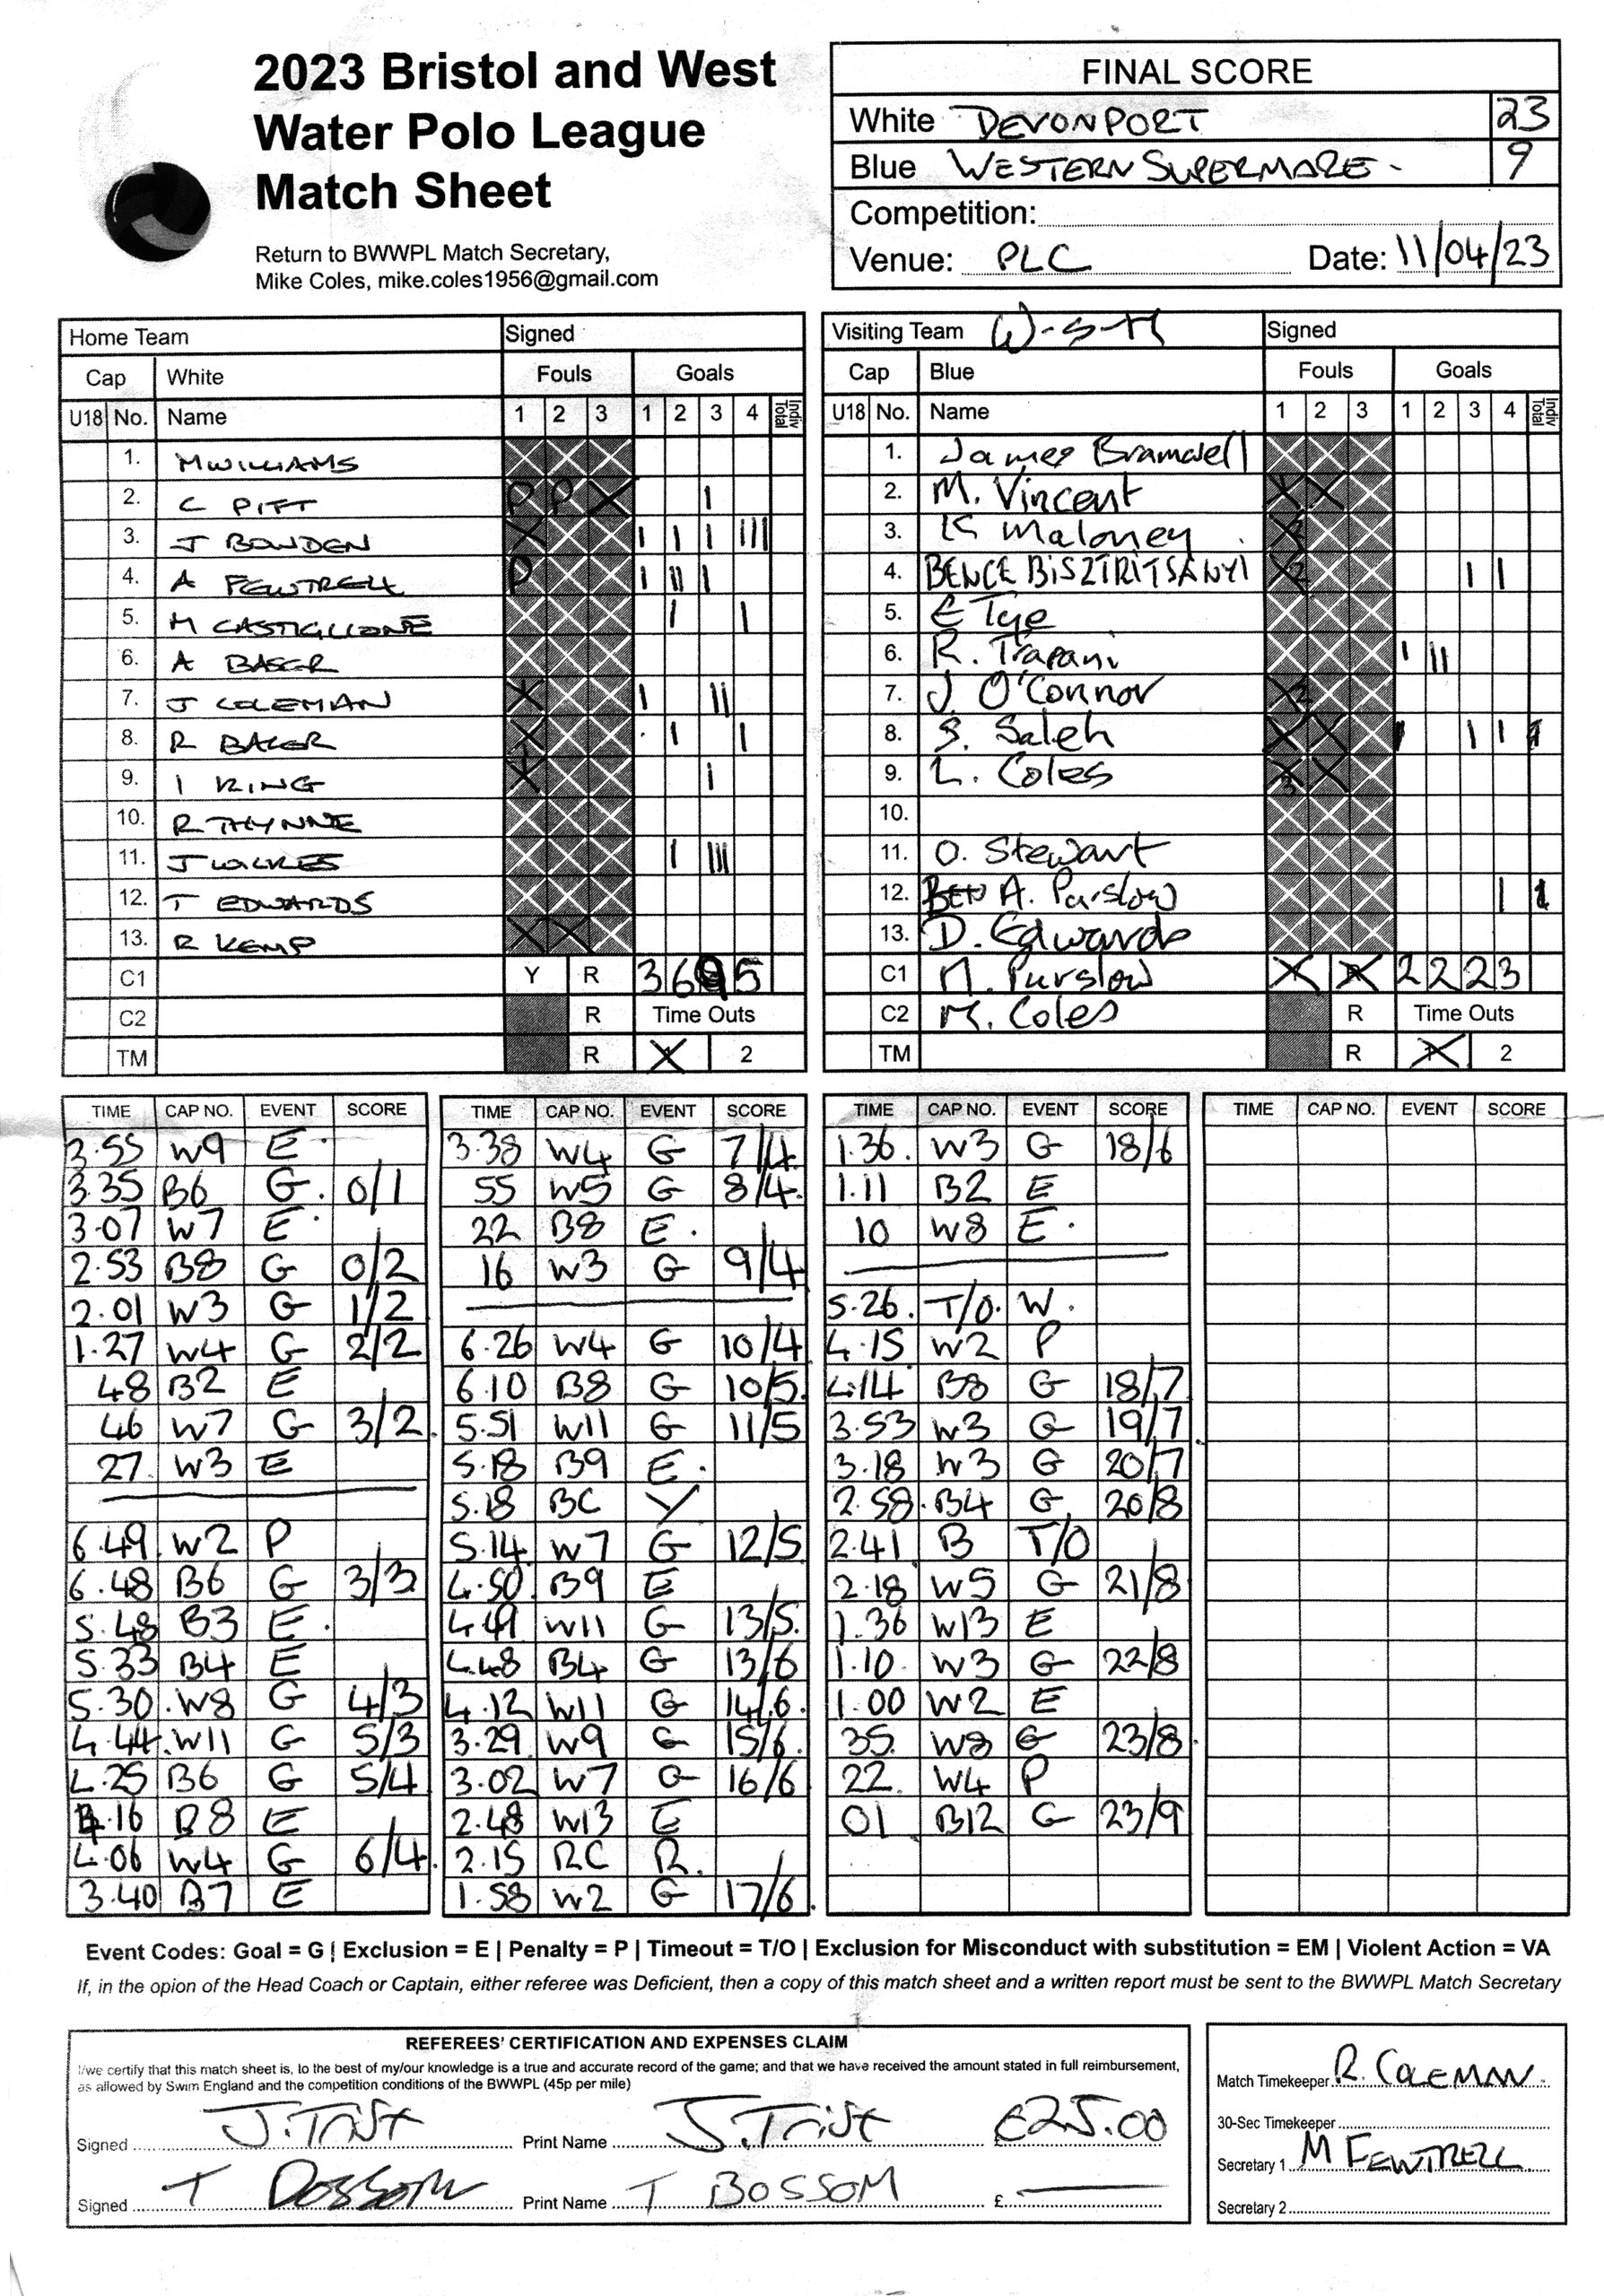 2023 Bristol and West
Water Polo League
Match Sheet
Return to BWWPL Match Secretary,
Mike Coles, mike.coles1956@gmail.com
FINAL SCORE
White DEVONPORT 23
Blue WESTERN SUPERMARE - 9
Competition:
Venue: PLC Date: 11/04/23
Home Team Signed
Cap White Fouls Goals
U18 No. Name 1 2 3 1 2 3 4 Indiv Total
1. M WILLIAMS
2. C PITT P P X I
3. J BOWDEN X I I I III
4. A FEWTRELL P I II I
5. M CASTIGLIONE I I
6. A BAKER
7. J COLEMAN X I II
8. R BAKER X I I
9. I KING X I
10. R THYNNE
11. J WILKES I III
12. T EDWARDS
13. R KEMP X X
C1 Y R 3 6 9 5
C2 R Time Outs
TM R X 2
Visiting Team W-S-M Signed
Cap Blue Fouls Goals
U18 No. Name 1 2 3 1 2 3 4 Indiv Total
1. James Bramwell
2. M. Vincent X X
3. K Maloney X
4. BENCE BISZTRITSANYI X I I
5. E Tye
6. R. Trapani I II
7. J. O'Connor X
8. S. Saleh X X I I I
9. L. Coles X X
10.
11. O. Stewart
12. BEN A. Purslow I
13. D. Edwards
C1 M. Purslow X X 2 2 2 3
C2 M. Coles R Time Outs
TM R X 2
TIME CAP NO. EVENT SCORE
3.55 W9 E
3.35 B6 G 0/1
3.07 W7 E
2.53 B8 G 0/2
2.01 W3 G 1/2
1.27 W4 G 2/2
48 B2 E
46 W7 G 3/2
27 W3 E
6.49 W2 P
6.48 B6 G 3/3
5.48 B3 E
5.33 B4 E
5.30 W8 G 4/3
4.44 W11 G 5/3
4.25 B6 G 5/4
4.16 B8 E
4.06 W4 G 6/4
3.40 B7 E
TIME CAP NO. EVENT SCORE
3.38 W4 G 7/4
55 W5 G 8/4
22 B8 E
16 W3 G 9/4
6.26 W4 G 10/4
6.10 B8 G 10/5
5.51 W11 G 11/5
5.18 B9 E
5.18 BC Y
5.14 W7 G 12/5
4.50 B9 E
4.49 W11 G 13/5
4.48 B4 G 13/6
4.12 W11 G 14/6
3.29 W9 G 15/6
3.02 W7 G 16/6
2.48 W13 E
2.15 BC R
1.58 W2 G 17/6
TIME CAP NO. EVENT SCORE
1.36 W3 G 18/6
1.11 B2 E
10 W8 E
5.26 T/O W
4.15 W2 P
4.14 B8 G 18/7
3.53 W3 G 19/7
3.18 W3 G 20/7
2.58 B4 G 20/8
2.41 B T/O
2.18 W5 G 21/8
1.36 W13 E
1.10 W3 G 22/8
1.00 W2 E
35 W8 G 23/8
22 W4 P
01 B12 G 23/9
TIME CAP NO. EVENT SCORE
Event Codes: Goal = G | Exclusion = E | Penalty = P | Timeout = T/O | Exclusion for Misconduct with substitution = EM | Violent Action = VA
If, in the opion of the Head Coach or Captain, either referee was Deficient, then a copy of this match sheet and a written report must be sent to the BWWPL Match Secretary
REFEREES' CERTIFICATION AND EXPENSES CLAIM
I/we certify that this match sheet is, to the best of my/our knowledge is a true and accurate record of the game; and that we have received the amount stated in full reimbursement,
as allowed by Swim England and the competition conditions of the BWWPL (45p per mile)
Signed J. Trist Print Name J. Trist £25.00
Signed T Bossom Print Name T BOSSOM £
Match Timekeeper R. COLEMAN
30-Sec Timekeeper
Secretary 1 M FEWTRELL
Secretary 2